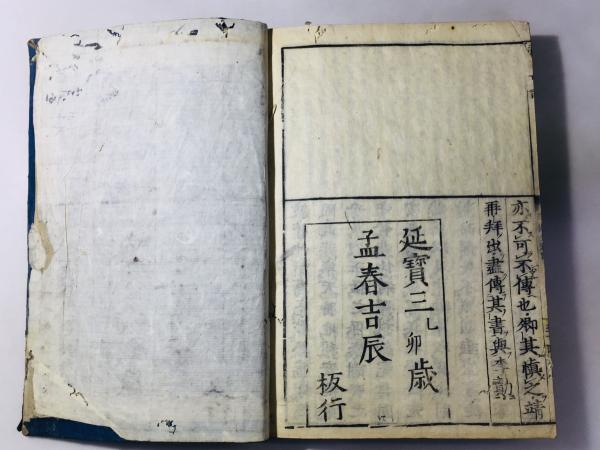 亦不可不傳也卿其慎之靖
再拜出盡傳其書與李勣
延寶三乙卯歳
孟春吉辰
板行